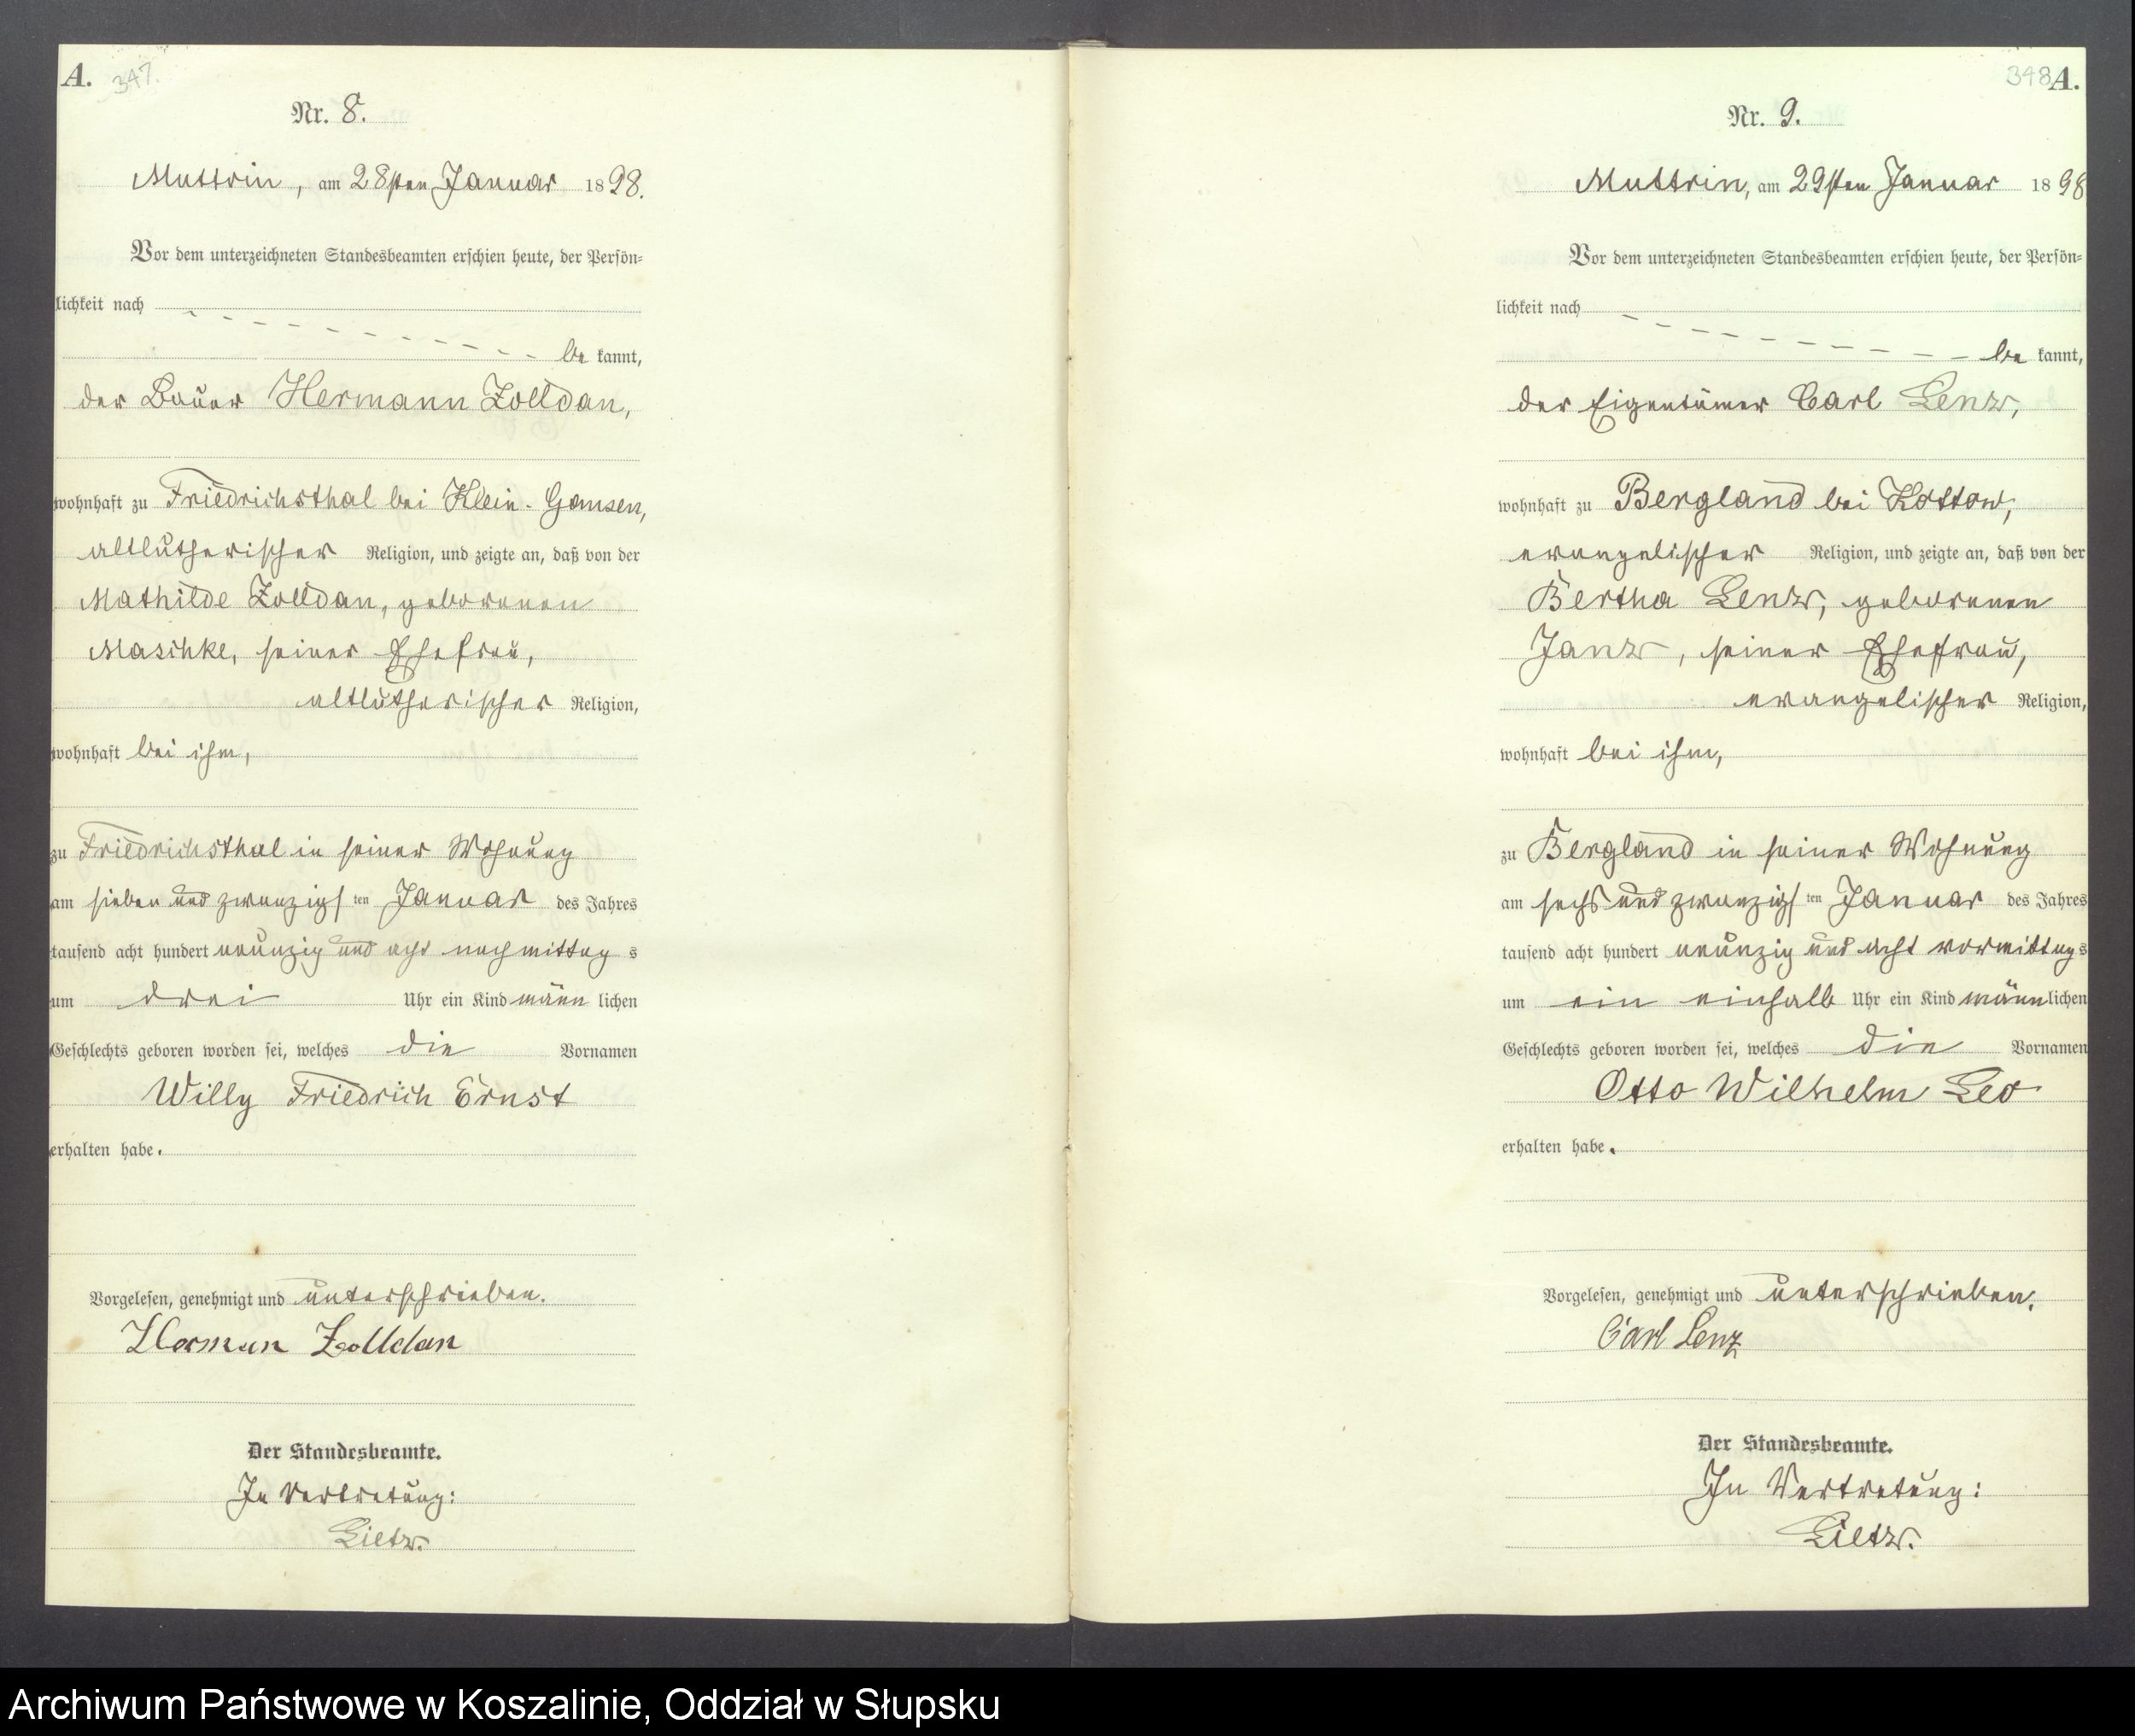 A. 347.
Nr. 8.
Muttrin, am 28sten Januar 1898.
Vor dem unterzeichneten Standesbeamten erschien heute, der Persön-
lichkeit nach
be kannt,
der Bauer Hermann Zolldan,
wohnhaft zu Friedrichsthal bei Klein-Gansen,
altlutherischer Religion, und zeigte an, daß von der
Mathilde Zolldan, geborenen
Maschke, seiner Ehefrau,
altlutherischer Religion,
wohnhaft bei ihm,
zu Friedrichsthal in seiner Wohnung
am sieben und zwanzigsten Januar des Jahres
tausend acht hundert neunzig und acht nachmittags
um drei Uhr ein Kind männlichen
Geschlechts geboren worden sei, welches die Vornamen
Willy Friedrich Ernst
erhalten habe.
Vorgelesen, genehmigt und unterschrieben.
Herman Zolldan
Der Standesbeamte.
In Vertretung:
Lietz.
348 A.
Nr. 9.
Muttrin, am 29sten Januar 1898
Vor dem unterzeichneten Standesbeamten erschien heute, der Persön-
lichkeit nach
be kannt,
der Eigentümer Carl Lenz,
wohnhaft zu Bergland bei Kottow,
evangelischer Religion, und zeigte an, daß von der
Bertha Lenz, geborenen
Janz, seiner Ehefrau,
evangelischer Religion,
wohnhaft bei ihm,
zu Bergland in seiner Wohnung
am sechs und zwanzigsten Januar des Jahres
tausend acht hundert neunzig und acht vormittags
um ein einhalb Uhr ein Kind männlichen
Geschlechts geboren worden sei, welches die Vornamen
Otto Wilhelm Leo
erhalten habe.
Vorgelesen, genehmigt und unterschrieben.
Carl Lenz
Der Standesbeamte.
In Vertretung:
Lietz.
Archiwum Państwowe w Koszalinie, Oddział w Słupsku